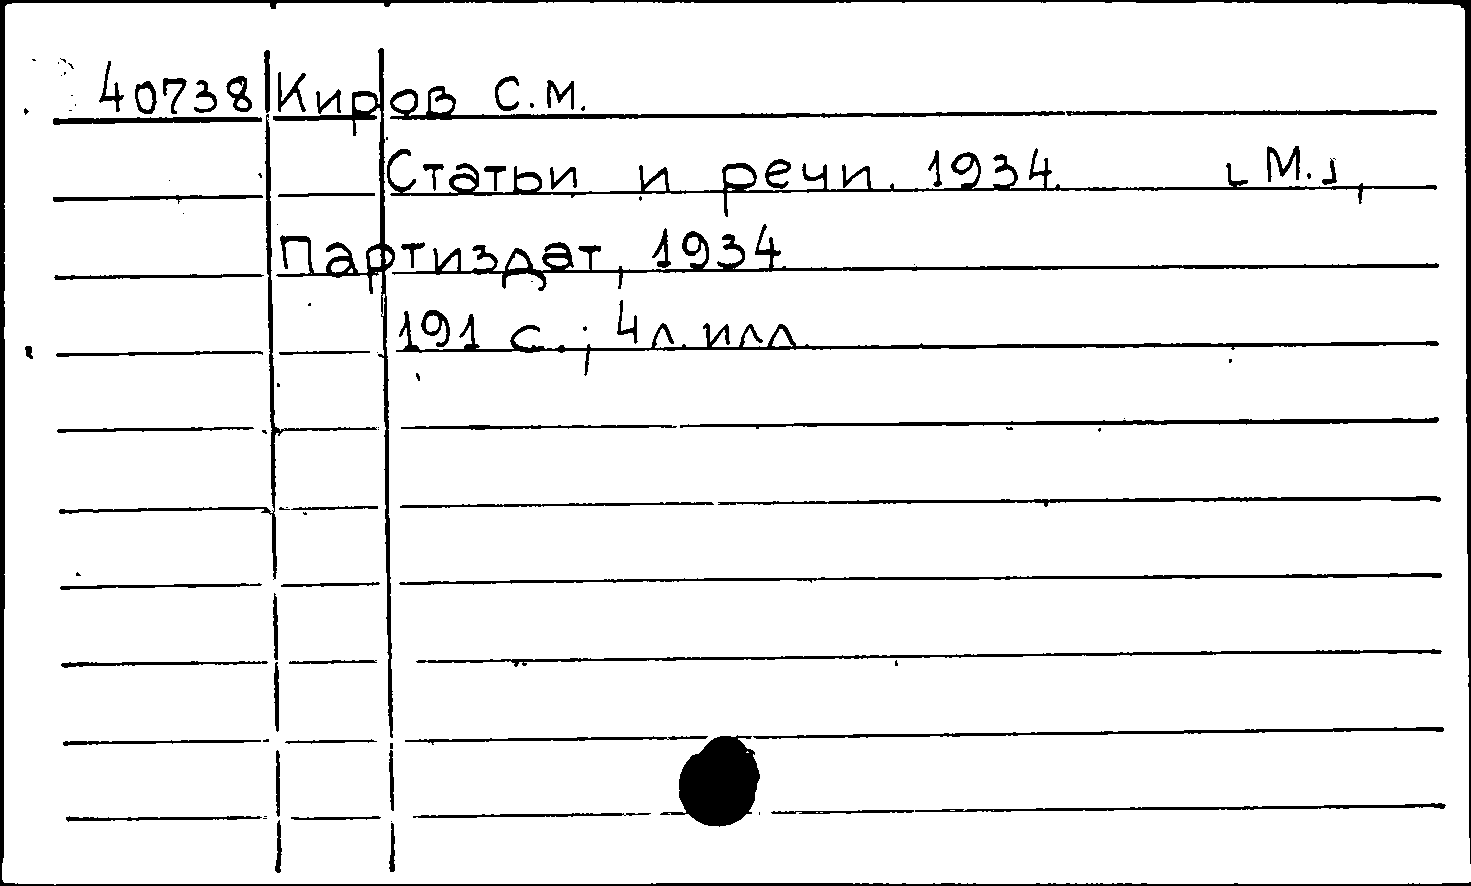 40738 Киров С.М.
Статьи и речи. 1934. [М.],
Партиздат, 1934.
191 с.; 4 л. илл.